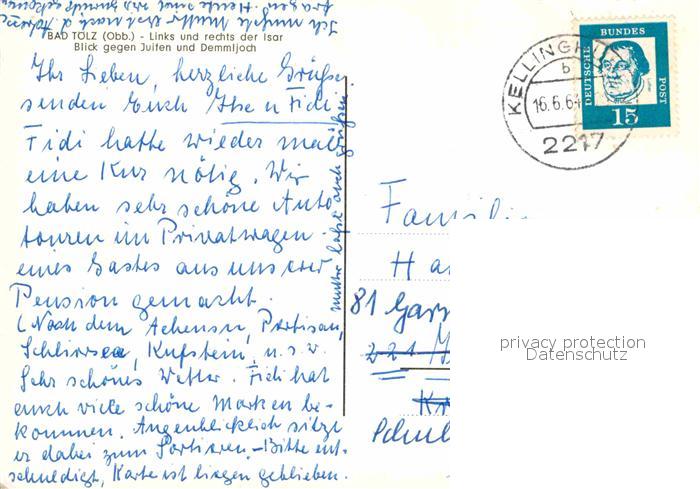 BAD TÖLZ (Obb.) - Links und rechts der Isar
Blick gegen Juifen und Demmljoch
Ihr Lieben, herzliche Grüße
senden Euch Ilse u Fidi.
Fidi hatte wieder mal
eine Kur nötig. Wir
haben sehr schöne Auto
touren im Privatwagen
eines Gastes aus unserer
Pension gemacht.
(Nach dem Achensee, Partisau,
Schliersee, Kufstein, u.s.w.
Sehr schönes Wetter. Fidi hat
auch viele schöne Marken be-
kommen. Augenblicklich sitzt
er dabei zum Sortieren. - Bitte ent-
schuldigt, Karte ist liegen geblieben.
Mutter läßt auch grüßen.
KELLINGH
b
16.6.6
2217
DEUTSCHE BUNDES POST
15
Famili
Ha
81 Gar
221
Schul
privacy protection
Datenschutz